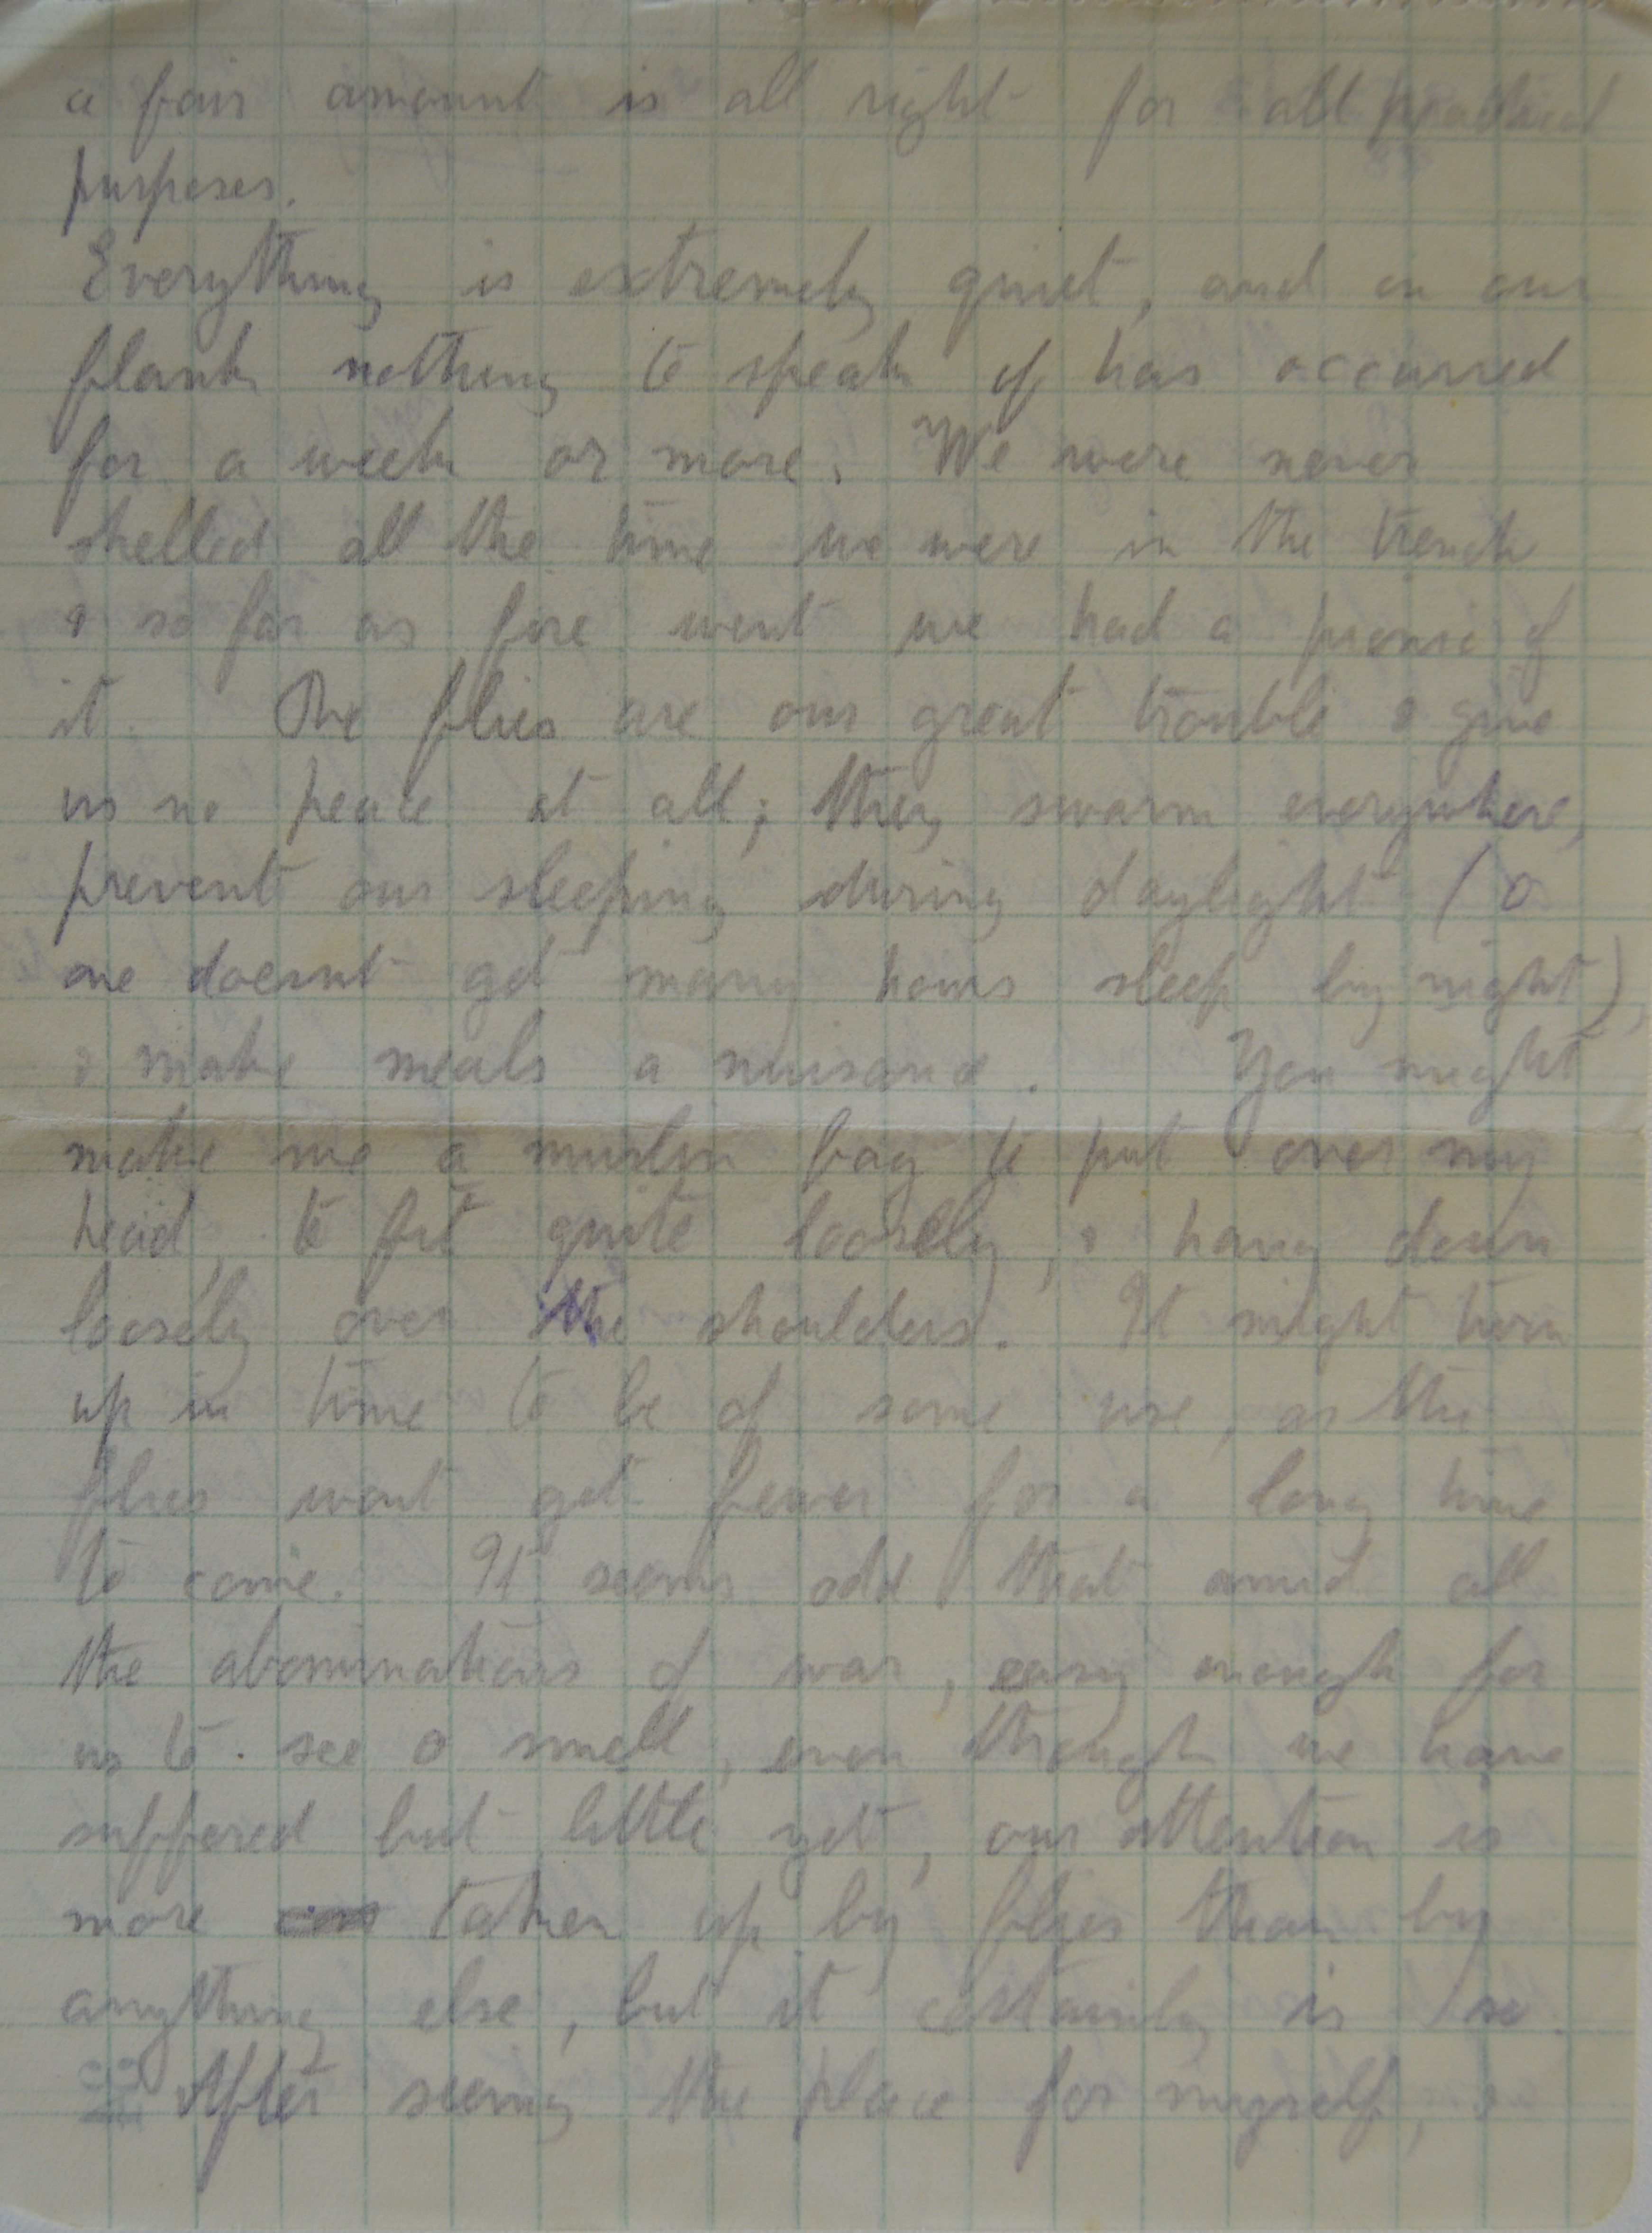 a fair amount is all right for all practical
purposes.
Everything is extremely quiet, and on our
flank nothing to speak of has occurred
for a week or more. We were never
shelled all the time we were in the trench
& so far as fire went we had a picnic of
it. The flies are our great trouble & give
us no peace at all; they swarm everywhere,
prevent our sleeping during daylight (&
one doesnt get many hours sleep by night),
& make meals a nuisance. You might
make me a muslin bag to put over my
head, to fit quite loosely, & hang down
loosely over the shoulders. It might turn
up in time to be of some use, as the
flies wont get fewer for a long time
to come. It seems odd that amid all
the abominations of war, easy enough for
us to see & smell, even though we have
suffered but little yet, our attention is
more taken up by flies than by
anything else, but it certainly is so.
After seeing the place for myself, &